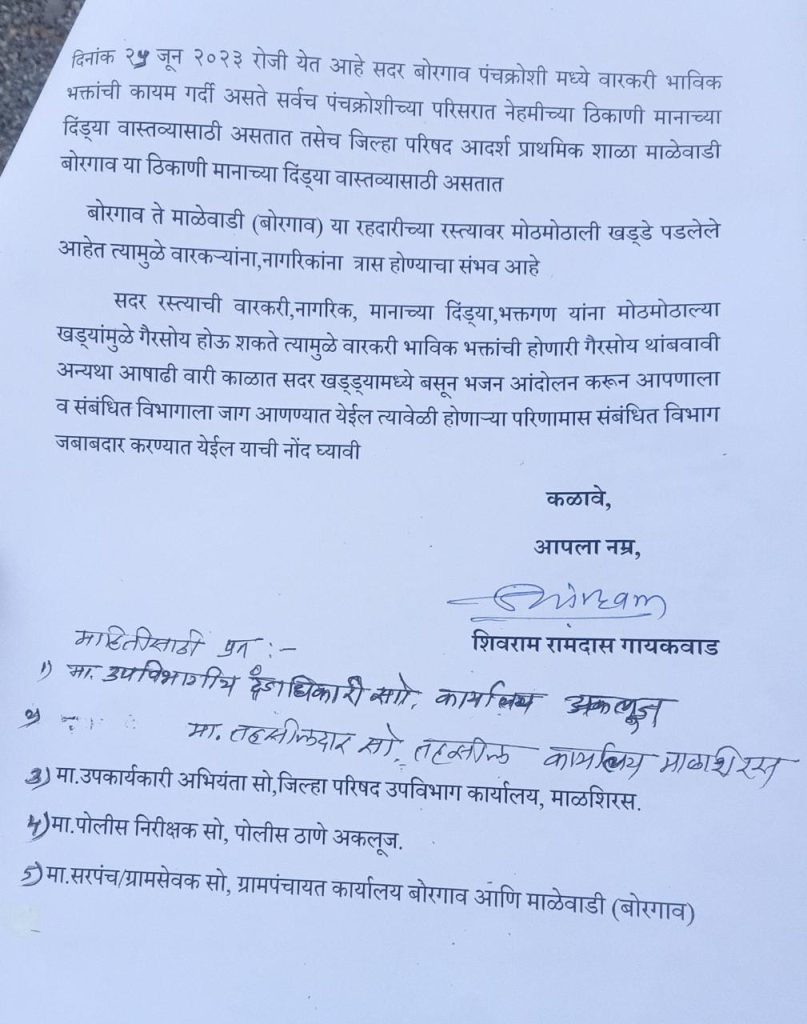 दिनांक २५ जून २०२३ रोजी येत आहे सदर बोरगाव पंचक्रोशी मध्ये वारकरी भाविक
भक्तांची कायम गर्दी असते सर्वच पंचक्रोशीच्या परिसरात नेहमीच्या ठिकाणी मानाच्या
दिंड्या वास्तव्यासाठी असतात तसेच जिल्हा परिषद आदर्श प्राथमिक शाळा माळेवाडी
बोरगाव या ठिकाणी मानाच्या दिंड्या वास्तव्यासाठी असतात
बोरगाव ते माळेवाडी (बोरगाव) या रहदारीच्या रस्त्यावर मोठमोठाली खड्डे पडलेले
आहेत त्यामुळे वारकऱ्यांना,नागरिकांना त्रास होण्याचा संभव आहे
सदर रस्त्याची वारकरी,नागरिक, मानाच्या दिंड्या,भक्तगण यांना मोठमोठाल्या
खड्यांमुळे गैरसोय होऊ शकते त्यामुळे वारकरी भाविक भक्तांची होणारी गैरसोय थांबवावी
अन्यथा आषाढी वारी काळात सदर खड्ड्यामध्ये बसून भजन आंदोलन करून आपणाला
व संबंधित विभागाला जाग आणण्यात येईल त्यावेळी होणाऱ्या परिणामास संबंधित विभाग
जबाबदार करण्यात येईल याची नोंद घ्यावी
कळावे,
आपला नम्र,
शिवराम रामदास गायकवाड
माहितीसाठी प्रत :-
१) मा. उपविभागीय दंडाधिकारी सो, कार्यालय अकलूज
२) मा. तहसीलदार सो, तहसील कार्यालय माळशिरस
3) मा.उपकार्यकारी अभियंता सो,जिल्हा परिषद उपविभाग कार्यालय, माळशिरस.
4) मा.पोलीस निरीक्षक सो, पोलीस ठाणे अकलूज.
5) मा.सरपंच/ग्रामसेवक सो, ग्रामपंचायत कार्यालय बोरगाव आणि माळेवाडी (बोरगाव)